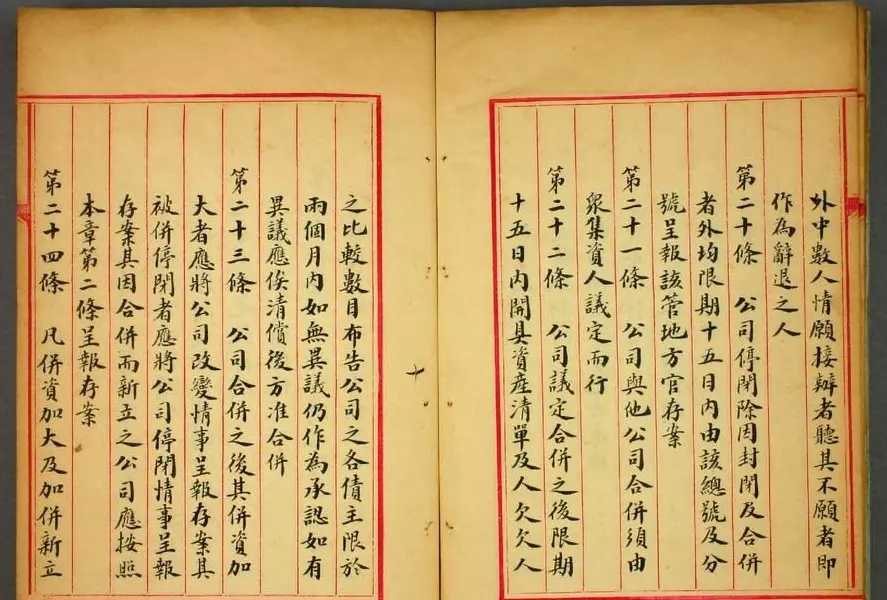 外中數人情願接辦者聽其不願者即
作為辭退之人
第二十條 公司停閉除因封閉及合併
者外均限期十五日內由該總號及分
號呈報該管地方官存案
第二十一條 公司與他公司合併須由
眾集資人議定而行
第二十二條 公司議定合併之後限期
十五日內開具資產清單及人欠欠人
之比較數目布告公司之各債主限於
兩個月內如無異議仍作為承認如有
異議應俟清償後方准合併
第二十三條 公司合併之後其併資加
大者應將公司改變情事呈報存案其
被併停閉者應將公司停閉情事呈報
存案其因合併而新立之公司應按照
本章第二條呈報存案
第二十四條 凡併資加大及加併新立
十